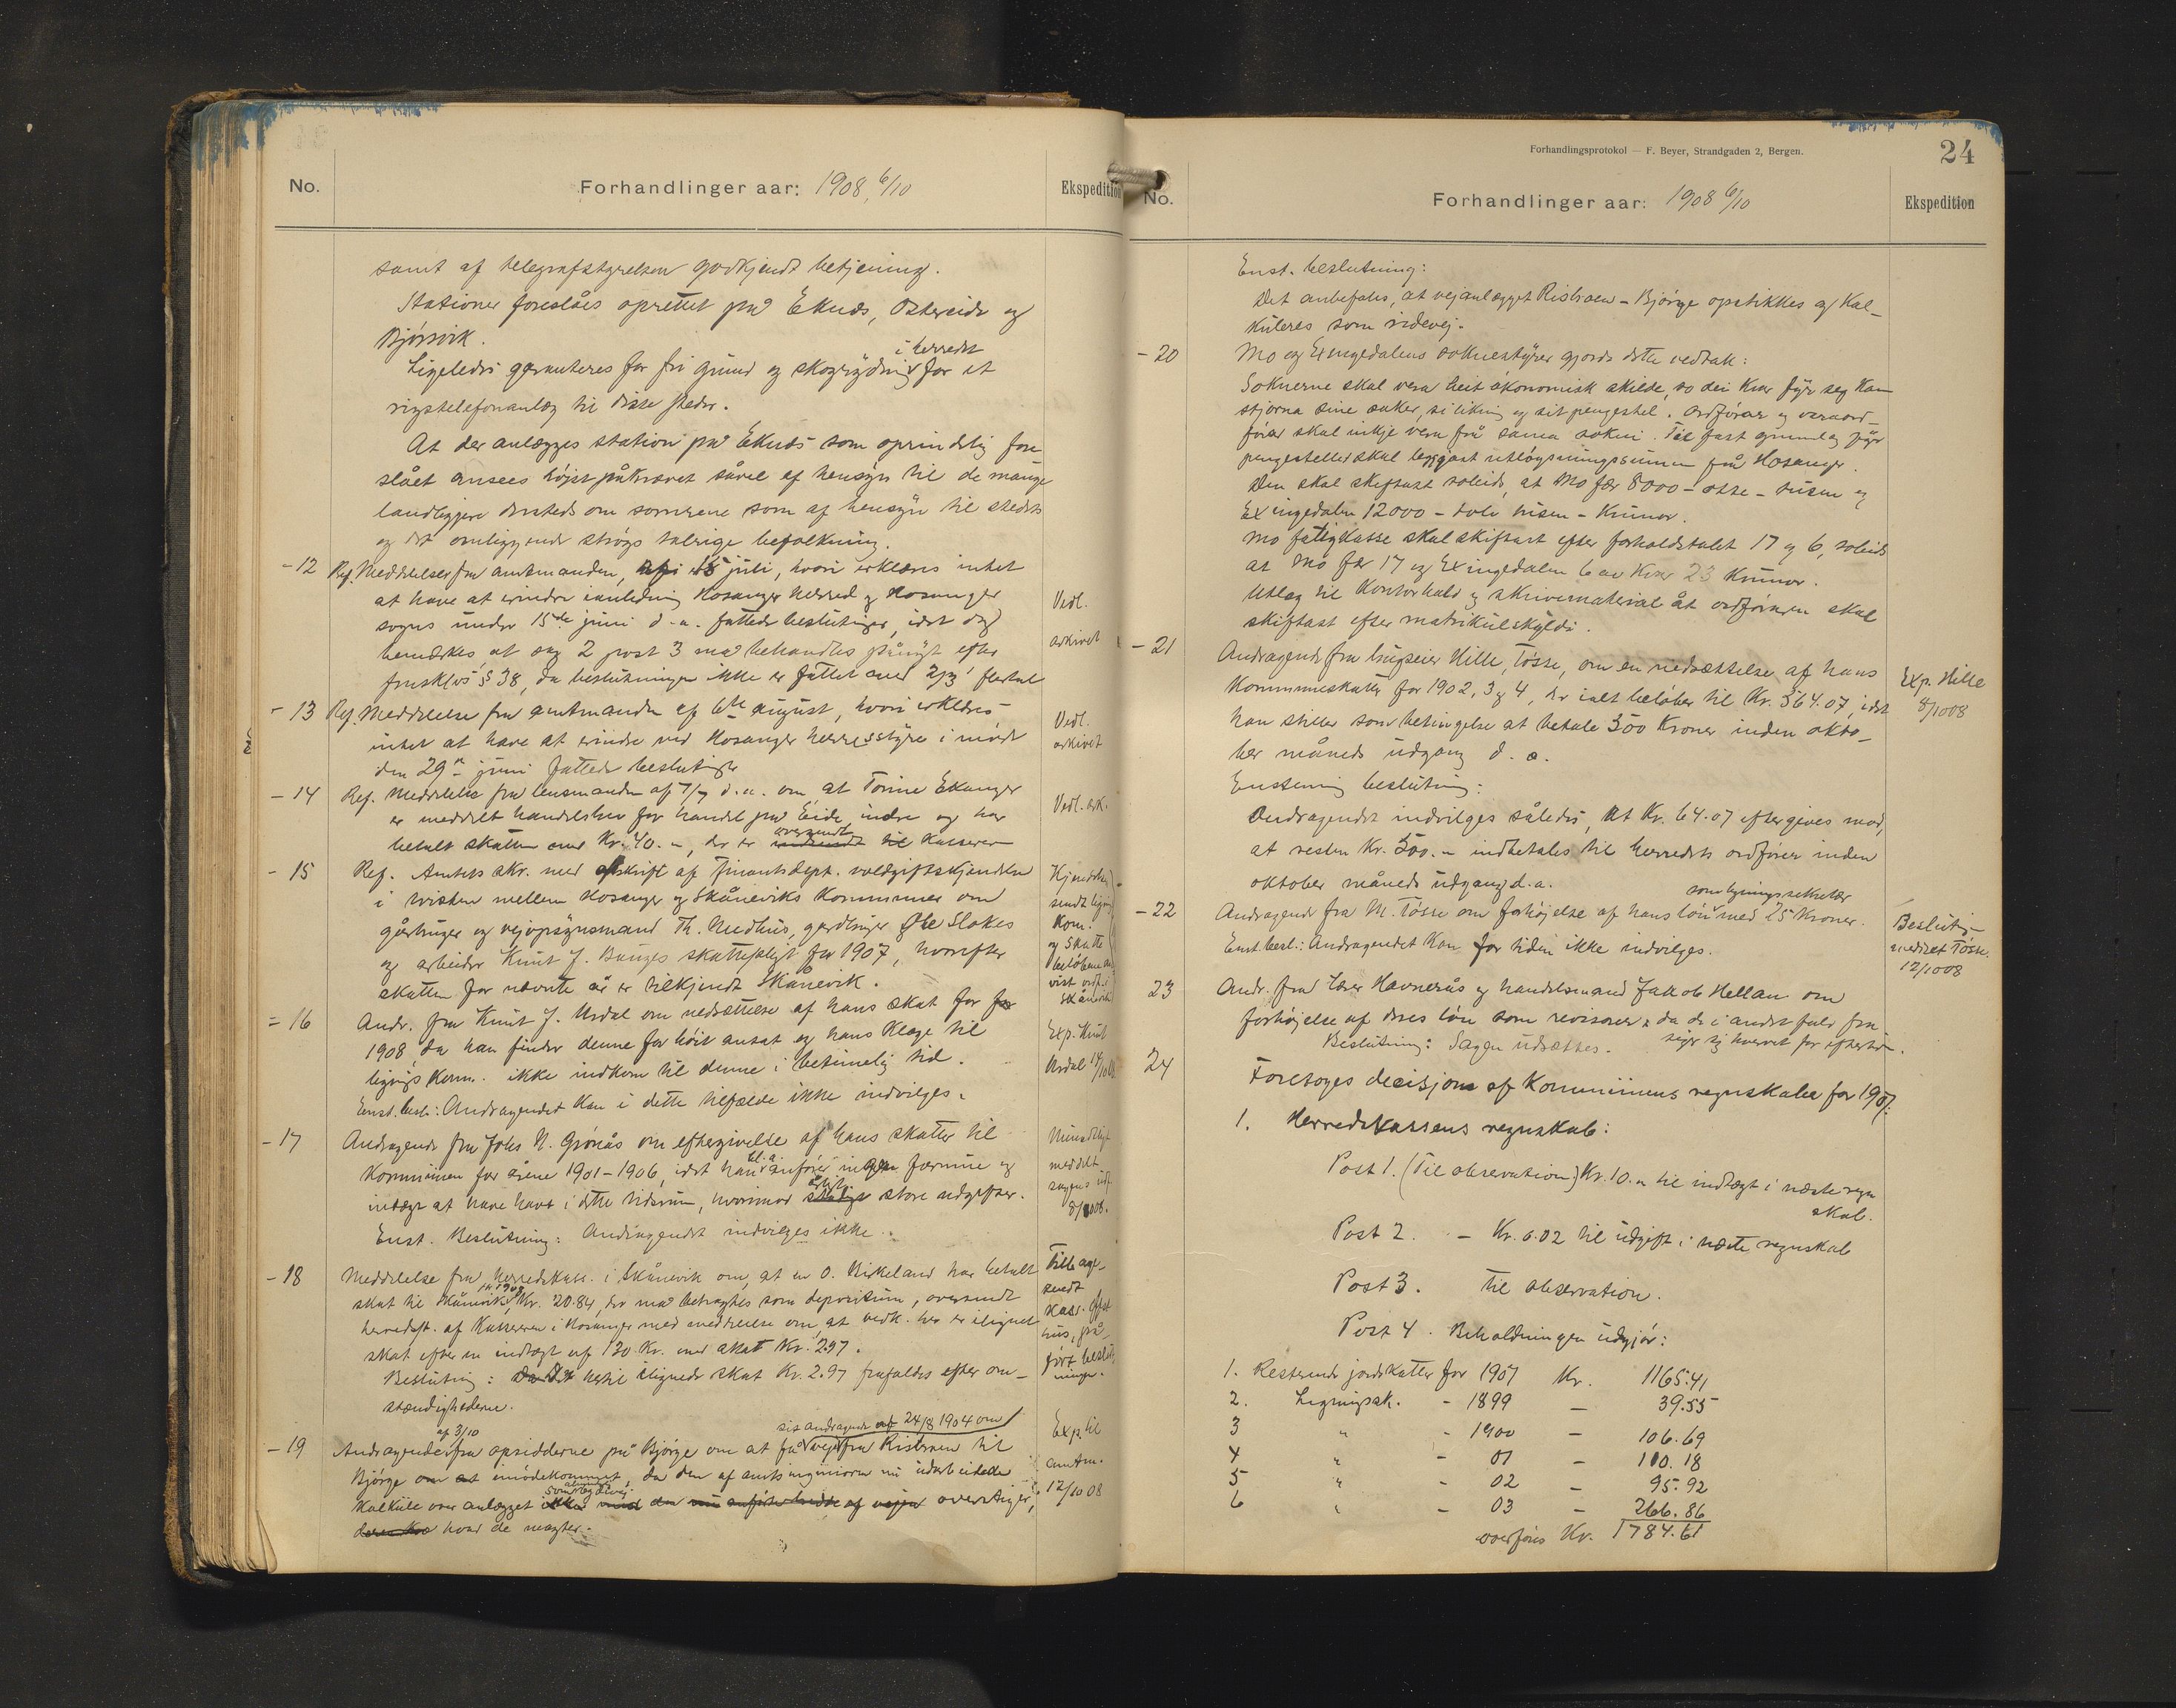 No.
Forhandlinger aar: 1908, 6/10
Ekspedition
samt af telegrafstyrelsen godkjendt betjening.
Stationer foreslåes oprettet på Eknes, Ostereide og
Bjørsvik.
i herredet
Ligeledes garanteres for fri grund og skogrydning for et
rigstelefonanlæg til disse steder.
At der anlægges station på Eknes som oprindelig fore-
slået ansees højst påkrævet såvel af hensyn til de mange
landliggere dersteds om somrene som af hensyn til stedets
og det omliggende strøgs talrige befolkning.
- 12 Ref. Meddelelse fra amtmanden, 15 juli, hvori erklæres intet
at have at erindre i anledning Hosanger herred og Hosanger
sogns under 15de juni d. a. fattede beslutninger, idet dog
bemærkes, at sag 2 post 3 må behandles påny efter
frmskl's § 38, da beslutningen ikke er fattet med 2/3 flertal
Vedl.
arkivet
- 13 Ref. Meddelelse fra amtmanden af 6te august, hvori erklæres
intet at have at erindre ved Hosanger herredsstyre i møde
den 29de juni fattede beslutninger
Vedl.
arkivet
- 14 Ref. Meddelelse fra lensmanden af 7/7 d. a. om, at Tomine Ekanger
er meddelt handelsbrev for handel på Eide, indre og har
oversendt
betalt skatten med Kr. 40.-, der er indsendt til Kassereren
Vedl. ark.
- 15 Ref. Amtets skr. med afskrift af Finantsdept. voldgiftskjendelse
i tvisten mellem Hosanger og Skåneviks Kommuner om
gårbruger og vejopsynsmand Th. Nedhus, gardbruger Ole Slokes
og arbeider Knut J. Bauges skattepligt for 1907, hvorefter
skatten for nævnte år er tilkjendt Skånevik.
Kjendelsen
sendt lign.
Kom.
og Skatte
beløbene an
vist ordf. i
Skånevik
= 16 Andr. fra Knut J. Urdal om nedsættelse af hans skat for
1908, da han finder denne for høit ansat og hans klage til
lignings komm. ikke indkom til denne i betimelig tid.
Enst. besl.: Andragendet kan i dette tilfælde ikke indvilges.
Exp. Knut
Urdal 14/10 08
- 17 Andragende fra Johs N. Grønås om eftergivelse af hans skatter til
bl. a.
Kommunen for årene 1901-1906, idet han anfører ingen formue og
indtægt at have havt i dette tidsrum, hvorimod store udgifter.
Enst. Beslutning: Andragendet indvilges ikke.
Mundtligt
meddelt
sagens udf.
8/10 08.
- 18 Meddelelse fra herredskass. i Skånevik om, at en O. Birkeland har betalt
for 1907
skat til Skånevik, Kr. 20.84, der må betragtes som depositum, oversendt
herredsst. af Kassereren i Hosanger med meddelelse om, at vedk. her er ilignet
skat efter en indtægt af 130 Kr. med skat Kr. 2.97.
Beslutning: Den hertil ilignede skat Kr. 2.97 frafaldes efter om-
stændighederne.
Tilbage-
sendt
kass.
hus, på-
ført beslut
ningen.
af 3/10 sit andragende af 24/8 1904 om
- 19 Andragende fra opsidderne på Bjørge om at få vej fra Risbraen til
Bjørge om at imødekommet, da den af amtsingeniøren nu udarbeidede
som bygdevei
kalkule over anlægget ikke med den nu anførte bredde af vejen overstiger,
hvad de magter.
Exp. til
amtm.
12/10 08
Forhandlingsprotokol — F. Beyer, Strandgaden 2, Bergen.
24
No.
Forhandlinger aar: 1908 6/10
Ekspedition
Enst. beslutning:
Det anbefales, at vejanlægget Risbraen - Bjørge opstikkes og kal-
kuleres som ridevej.
- 20 Mo og Exingedalens soknestyrer gjorde dette vedtak:
Soknerne skal vera heit økonomisk skilde, so dei kvar fyr seg kan
stjorna sine saker, si likning og sit pengestel. Ordførar og varaord-
førar skal inkje vera frå sama sokni. Til fast grunnlag fyr
pengestellet skal leggjast utløysningssumen frå Hosanger.
Den skal skiftast soleids, at Mo fær 8000 - otte - tusen og
Exingedalen 12000 - tolv tusen - Krunor.
Mo fatigkasse skal skiftast efter forholdstalet 17 og 6, soleids
at Mo fær 17 og Exingedalen 6 av kvar 23 krunor.
Utlag til kontorhald og skrivemateriel åt ordføraren skal
skiftast efter matrikulskyldi.
- 21 Andragende fra brugseier Hille, Tøsse, om en nedsættelse af hans
Kommuneskatter for 1902, 3 og 4, der ialt beløber til Kr. 564.07, idet
han stiller som betingelse at betale 500 Kroner inden okto-
ber måneds udgang d. a.
Enstemmig beslutning:
Andragendet indvilges således, at Kr. 64.07 eftergives mod,
at resten Kr. 500.- indbetales til herredets ordfører inden
oktober måneds udgang d. a.
Exp. Hille
8/10 08
som ligningssekretær
- 22 Andragende fra M. Tøsse om forhøjelse af hans løn med 25 Kroner.
Enst. besl.: Andragendet kan for tiden ikke indvilges.
Beslutng.
meddelt Tøsse.
12/10 08
23 Andr. fra lærer Havnerås og handelsmand Jakob Hellan om
forhøjelse af deres løn som revisorer, da de i andet fald fra-
siger sig hvervet for eftertiden.
Beslutning: Sagen udsættes.
24 Foretoges decisjon af Kommunens regnskaber for 1907:
1. Herredskassens regnskab:
Post 1. (Til observation) Kr. 10.- til indtægt i næste regn
skab.
Post 2. - Kr. 0.02 til udgift i næste regnskab
Post 3. Til observation.
Post 4. Beholdningen udgjør:
1. Resterende jordskatter for 1907 Kr. 1165.41
2. Ligningssk. - 1899 - 39.55
3 " - 1900 - 106.69
4 " - 01 - 110.18
5 " - 02 - 95.92
6 " - 03 - 266.86
overføres Kr. 1784.61